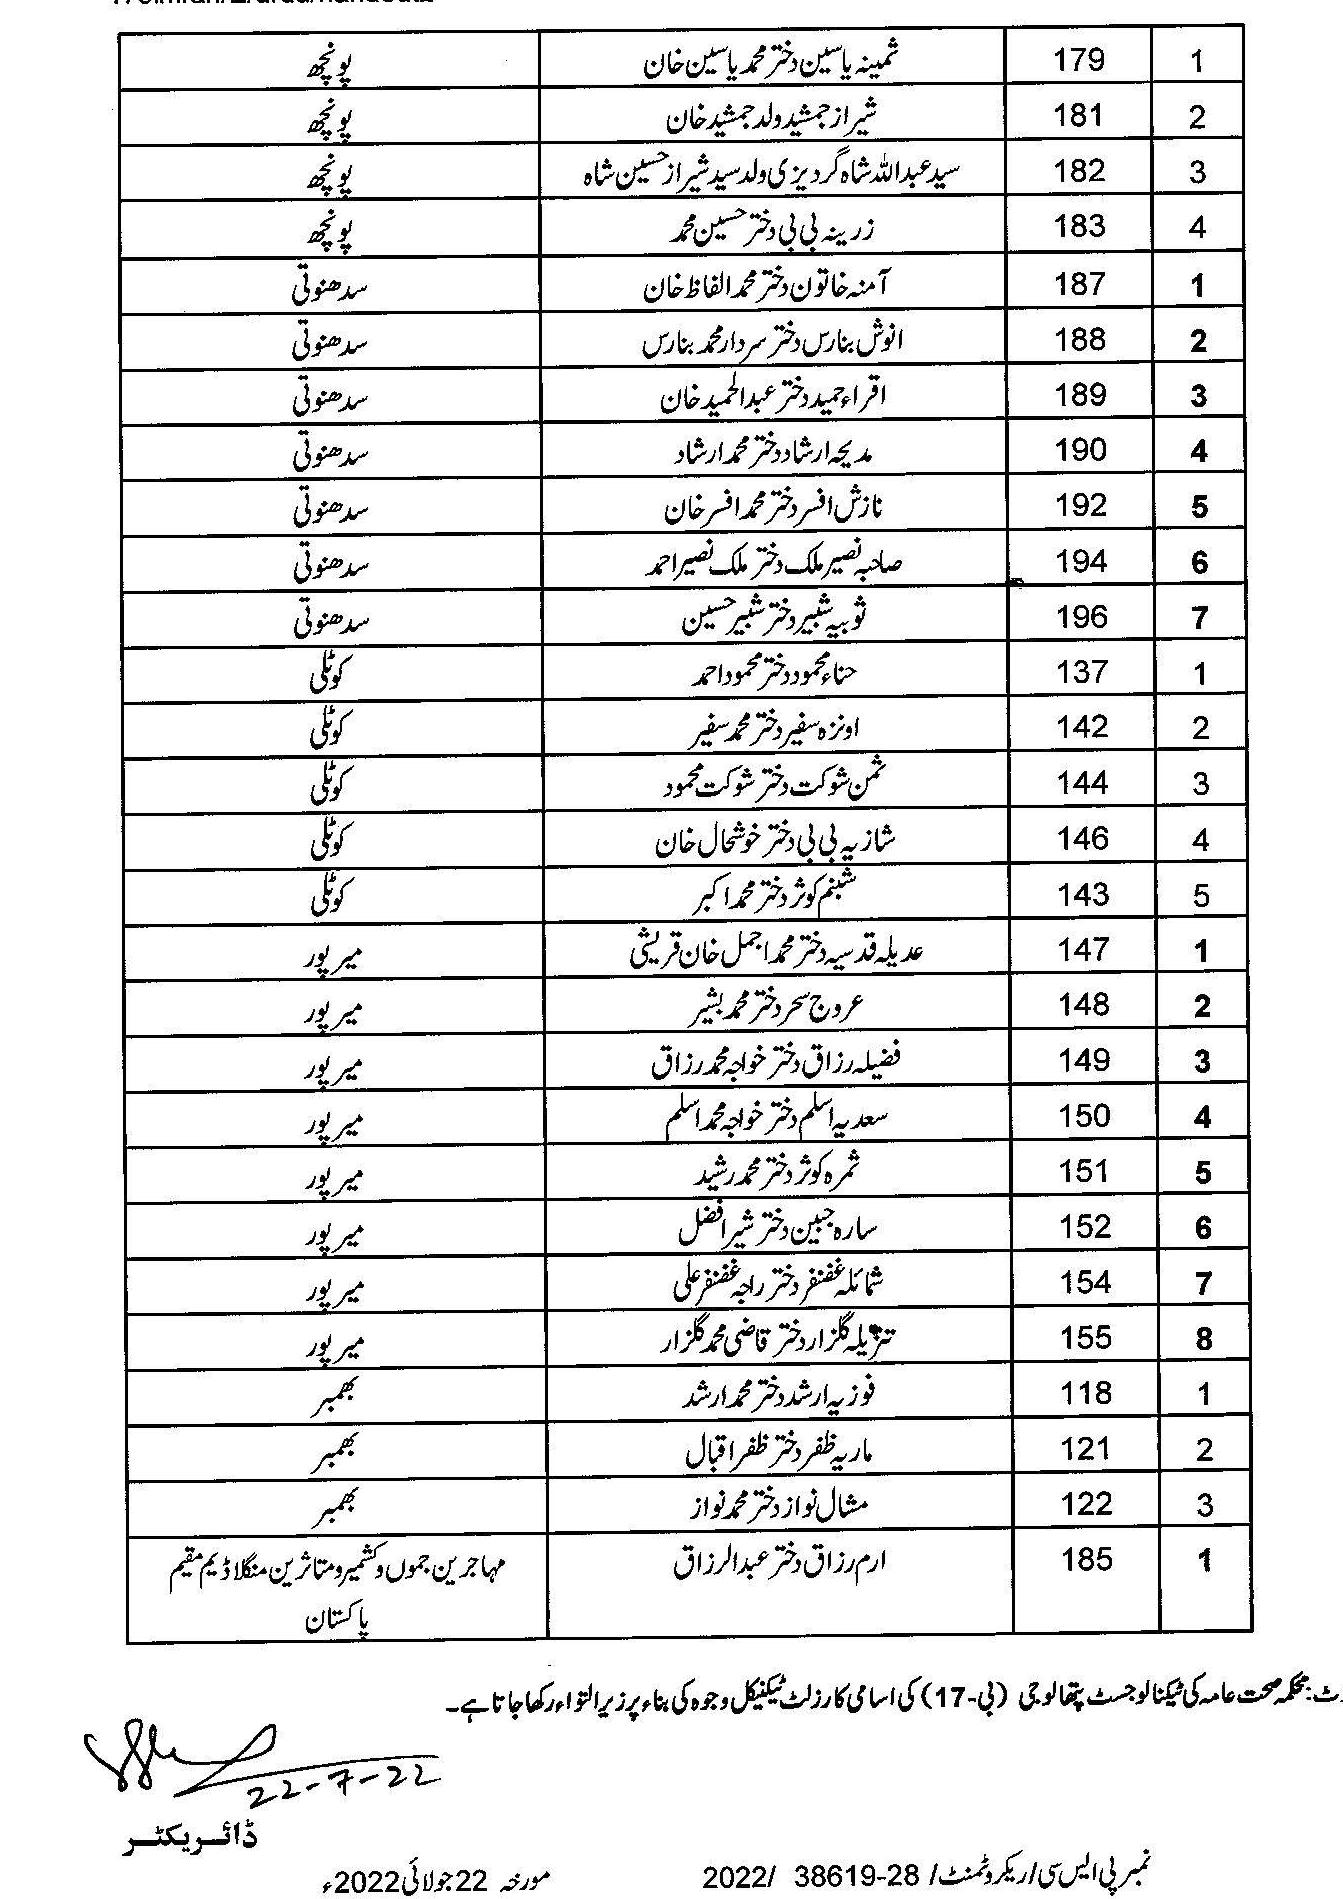 1 179 ثمینہ یاسین دختر محمد یاسین خان پونچھ
2 181 شیراز جمشید ولد جمشید خان پونچھ
3 182 سید عبداللہ شاہ گردیزی ولد سید شیراز حسین شاہ پونچھ
4 183 زرینہ بی بی دختر حسین محمد پونچھ
1 187 آمنہ خاتون دختر محمد الفاظ خان سدھنوتی
2 188 انوش بنارس دختر سردار محمد بنارس سدھنوتی
3 189 اقراء حمید دختر عبدالحمید خان سدھنوتی
4 190 مدیحہ ارشاد دختر محمد ارشاد سدھنوتی
5 192 نازش افسر دختر محمد افسر خان سدھنوتی
6 194 صاحبہ نصیر ملک دختر ملک نصیر احمد سدھنوتی
7 196 ثوبیہ شبیر دختر شبیر حسین سدھنوتی
1 137 حناء محمود دختر محمود احمد کوٹلی
2 142 اونزہ سفیر دختر محمد سفیر کوٹلی
3 144 ثمن شوکت دختر شوکت محمود کوٹلی
4 146 شازیہ بی بی دختر خوشحال خان کوٹلی
5 143 شبنم کوثر دختر محمد اکبر کوٹلی
1 147 عدیلہ قدسیہ دختر محمد اجمل خان قریشی میرپور
2 148 عروج سحر دختر محمد بشیر میرپور
3 149 فضیلہ رزاق دختر خواجہ محمد رزاق میرپور
4 150 سعدیہ اسلم دختر خواجہ محمد اسلم میرپور
5 151 ثمرہ کوثر دختر محمد رشید میرپور
6 152 سارہ جبین دختر شیر افضل میرپور
7 154 شمائلہ غضنفر دختر راجہ غضنفر علی میرپور
8 155 تنزیلہ گلزار دختر قاضی محمد گلزار میرپور
1 118 فوزیہ ارشد دختر محمد ارشد بھمبر
2 121 ماریہ ظفر دختر ظفر اقبال بھمبر
3 122 مشال نواز دختر محمد نواز بھمبر
1 185 ارم رزاق دختر عبدالرزاق مہاجرین جموں و کشمیر و متاثرین منگلا ڈیم مقیم
پاکستان
محکمہ صحت عامہ کی ٹیکنالوجسٹ پتھالوجی (بی-17) کی اسامی کا رزلٹ ٹیکنیکل وجوہ کی بناء پر زیر التواء رکھا جاتا ہے۔
22-7-22
ڈائریکٹر
نمبر پی ایس سی/ریکروٹمنٹ/ 38619-28 /2022 مورخہ 22 جولائی 2022ء